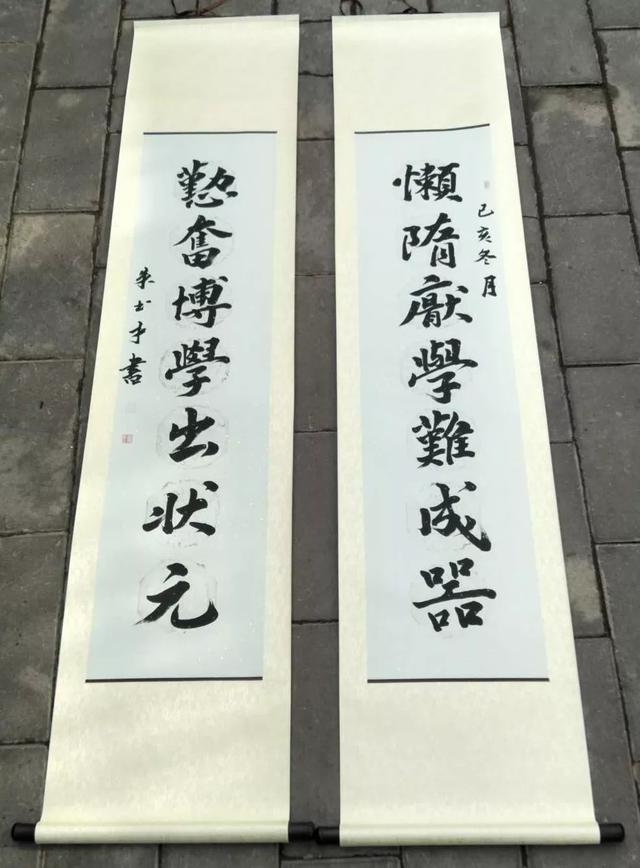 己亥冬月
懶隋厭學難成器
懃奮博學出状元
朱才書